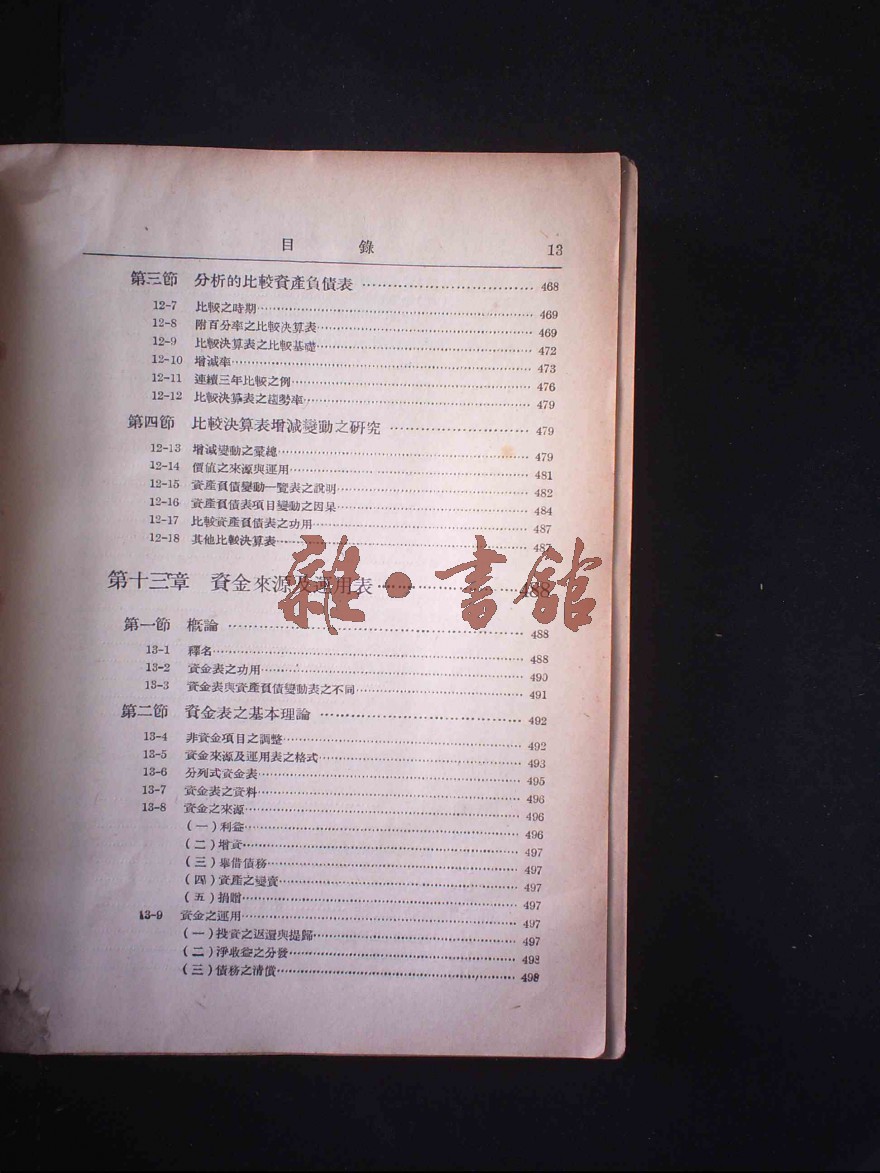 目 錄 13
第三節 分析的比較資產負債表 468
12-7 比較之時期 469
12-8 附百分率之比較決算表 469
12-9 比較決算表之比較基礎 472
12-10 增減率 473
12-11 連續三年比較之例 476
12-12 比較決算表之趨勢率 479
第四節 比較決算表增減變動之研究 479
12-13 增減變動之彙總 479
12-14 價值之來源與運用 481
12-15 資產負債變動一覽表之說明 482
12-16 資產負債表項目變動之因果 484
12-17 比較資產負債表之功用 487
12-18 其他比較決算表 487
第十三章 資金來源及運用表 488
雜·書館
第一節 概論 488
13-1 釋名 488
13-2 資金表之功用 490
13-3 資金表與資產負債變動表之不同 491
第二節 資金表之基本理論 492
13-4 非資金項目之調整 492
13-5 資金來源及運用表之格式 493
13-6 分列式資金表 495
13-7 資金表之資料 496
13-8 資金之來源 496
(一)利益 496
(二)增資 497
(三)舉借債務 497
(四)資產之變賣 497
(五)捐贈 497
13-9 資金之運用 497
(一)投資之返還與提歸 497
(二)淨收益之分發 498
(三)債務之清償 498